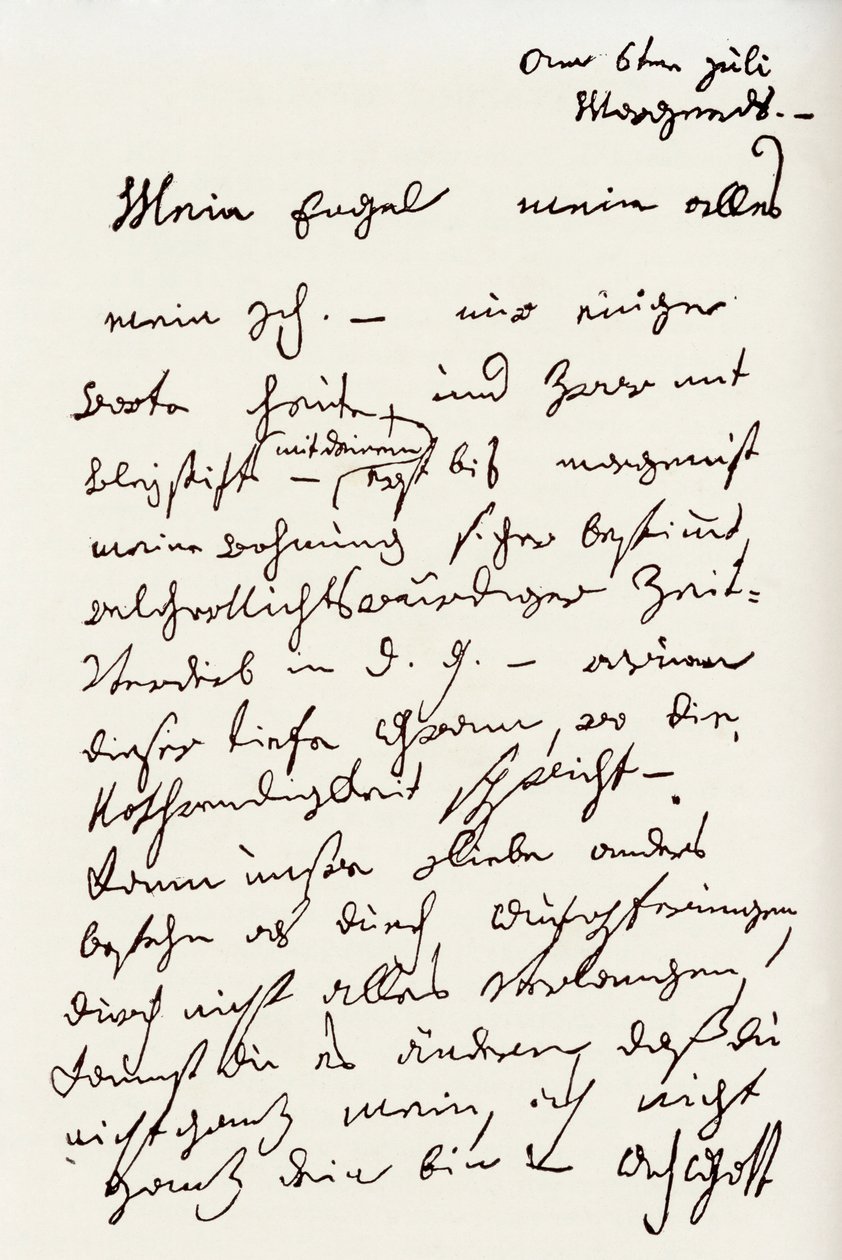 am 6ten Juli
Morgends. –
Mein Engel mein alles
mein Ich. – nur einige
worte heute, und zwar mit
mit deinem
bleystift – erst bis morgen ist
meine wohnung sicher bestimmt,
welcher Nichtswürdiger Zeit=
Verderb in d. g. – warum
dieser tiefe Gram, wo die
Nothwendigkeit spricht –
kann unsre Liebe anders
bestehn als durch Aufopferungen,
durch nicht alles Verlangen,
kannst du es ändern, daß du
nicht ganz mein, ich nicht
ganz dein bin – Ach Gott